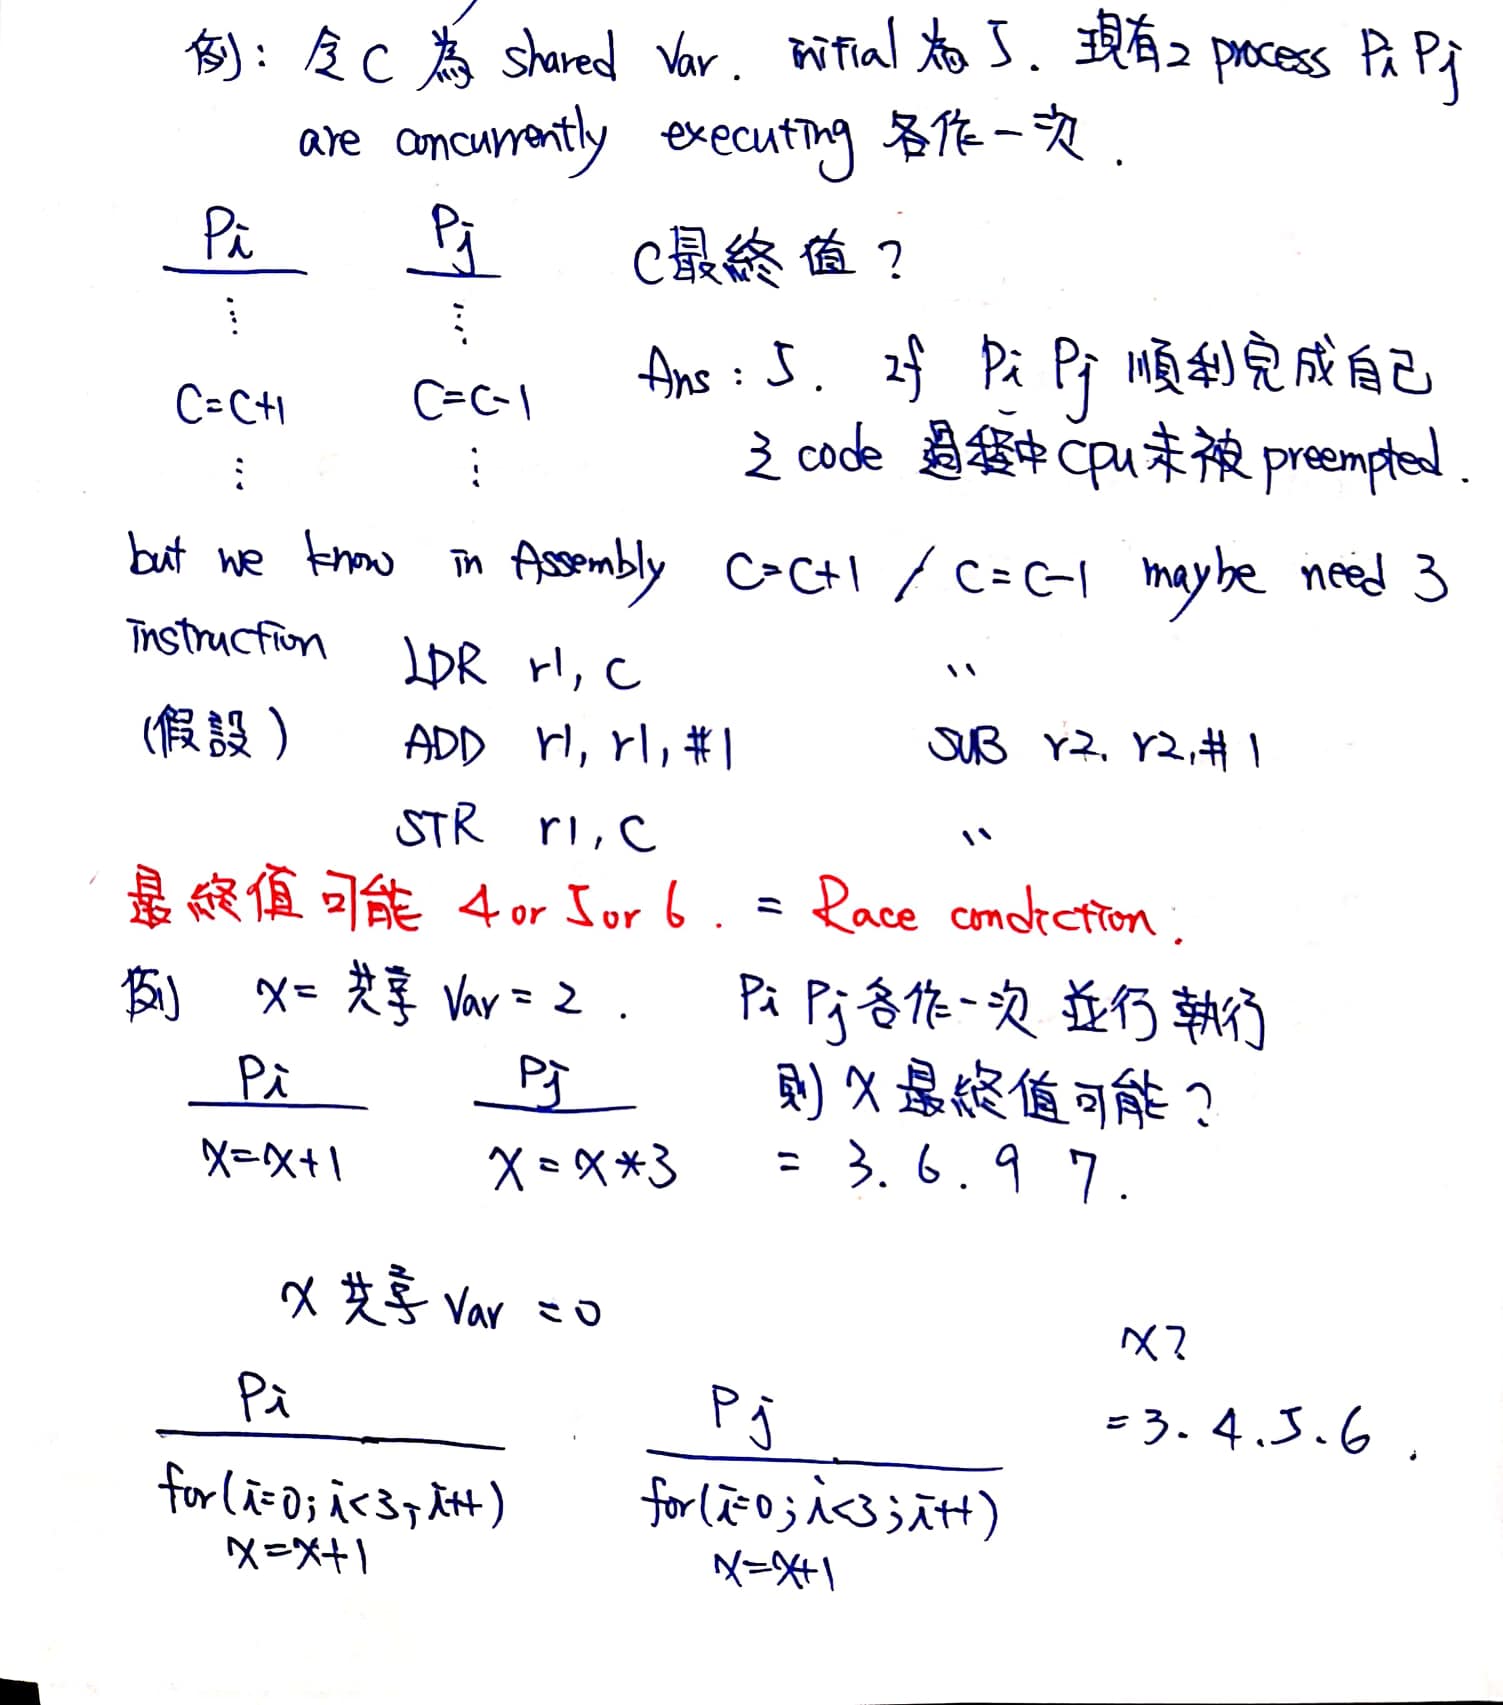 例: 令 C 為 shared Var. initial 為 5. 現有2 process Pi Pj
are concurrently executing 各作一次.
Pi Pj C最終值?
⋮ ⋮
C=C+1 C=C-1 Ans: 5. if Pi Pj 順利完成自己
⋮ ⋮ 之 code 過程中 cpu 未被 preempted.
but we know in Assembly C=C+1 / C=C-1 maybe need 3
instruction LDR r1, C "
(假設) ADD r1, r1, #1 SUB r2. r2,#1
STR r1, C "
最終值可能 4 or 5 or 6. = Race condiction.
例 X= 共享 Var = 2. Pi Pj 各作一次 並行執行
Pi Pj 則 X 最終值可能?
X=X+1 X=X*3 = 3. 6. 9 7.
X 共享 Var =0
X?
Pi Pj = 3. 4. 5. 6.
for(i=0; i<3; i++) for(i=0; i<3; i++)
X=X+1 X=X+1